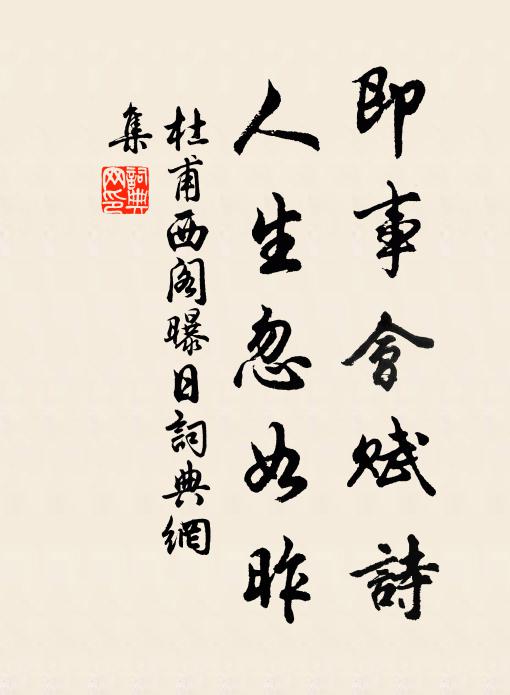 即事會賦詩
人生忽如昨
杜甫西閣曝日詞典網
集
詞典網印